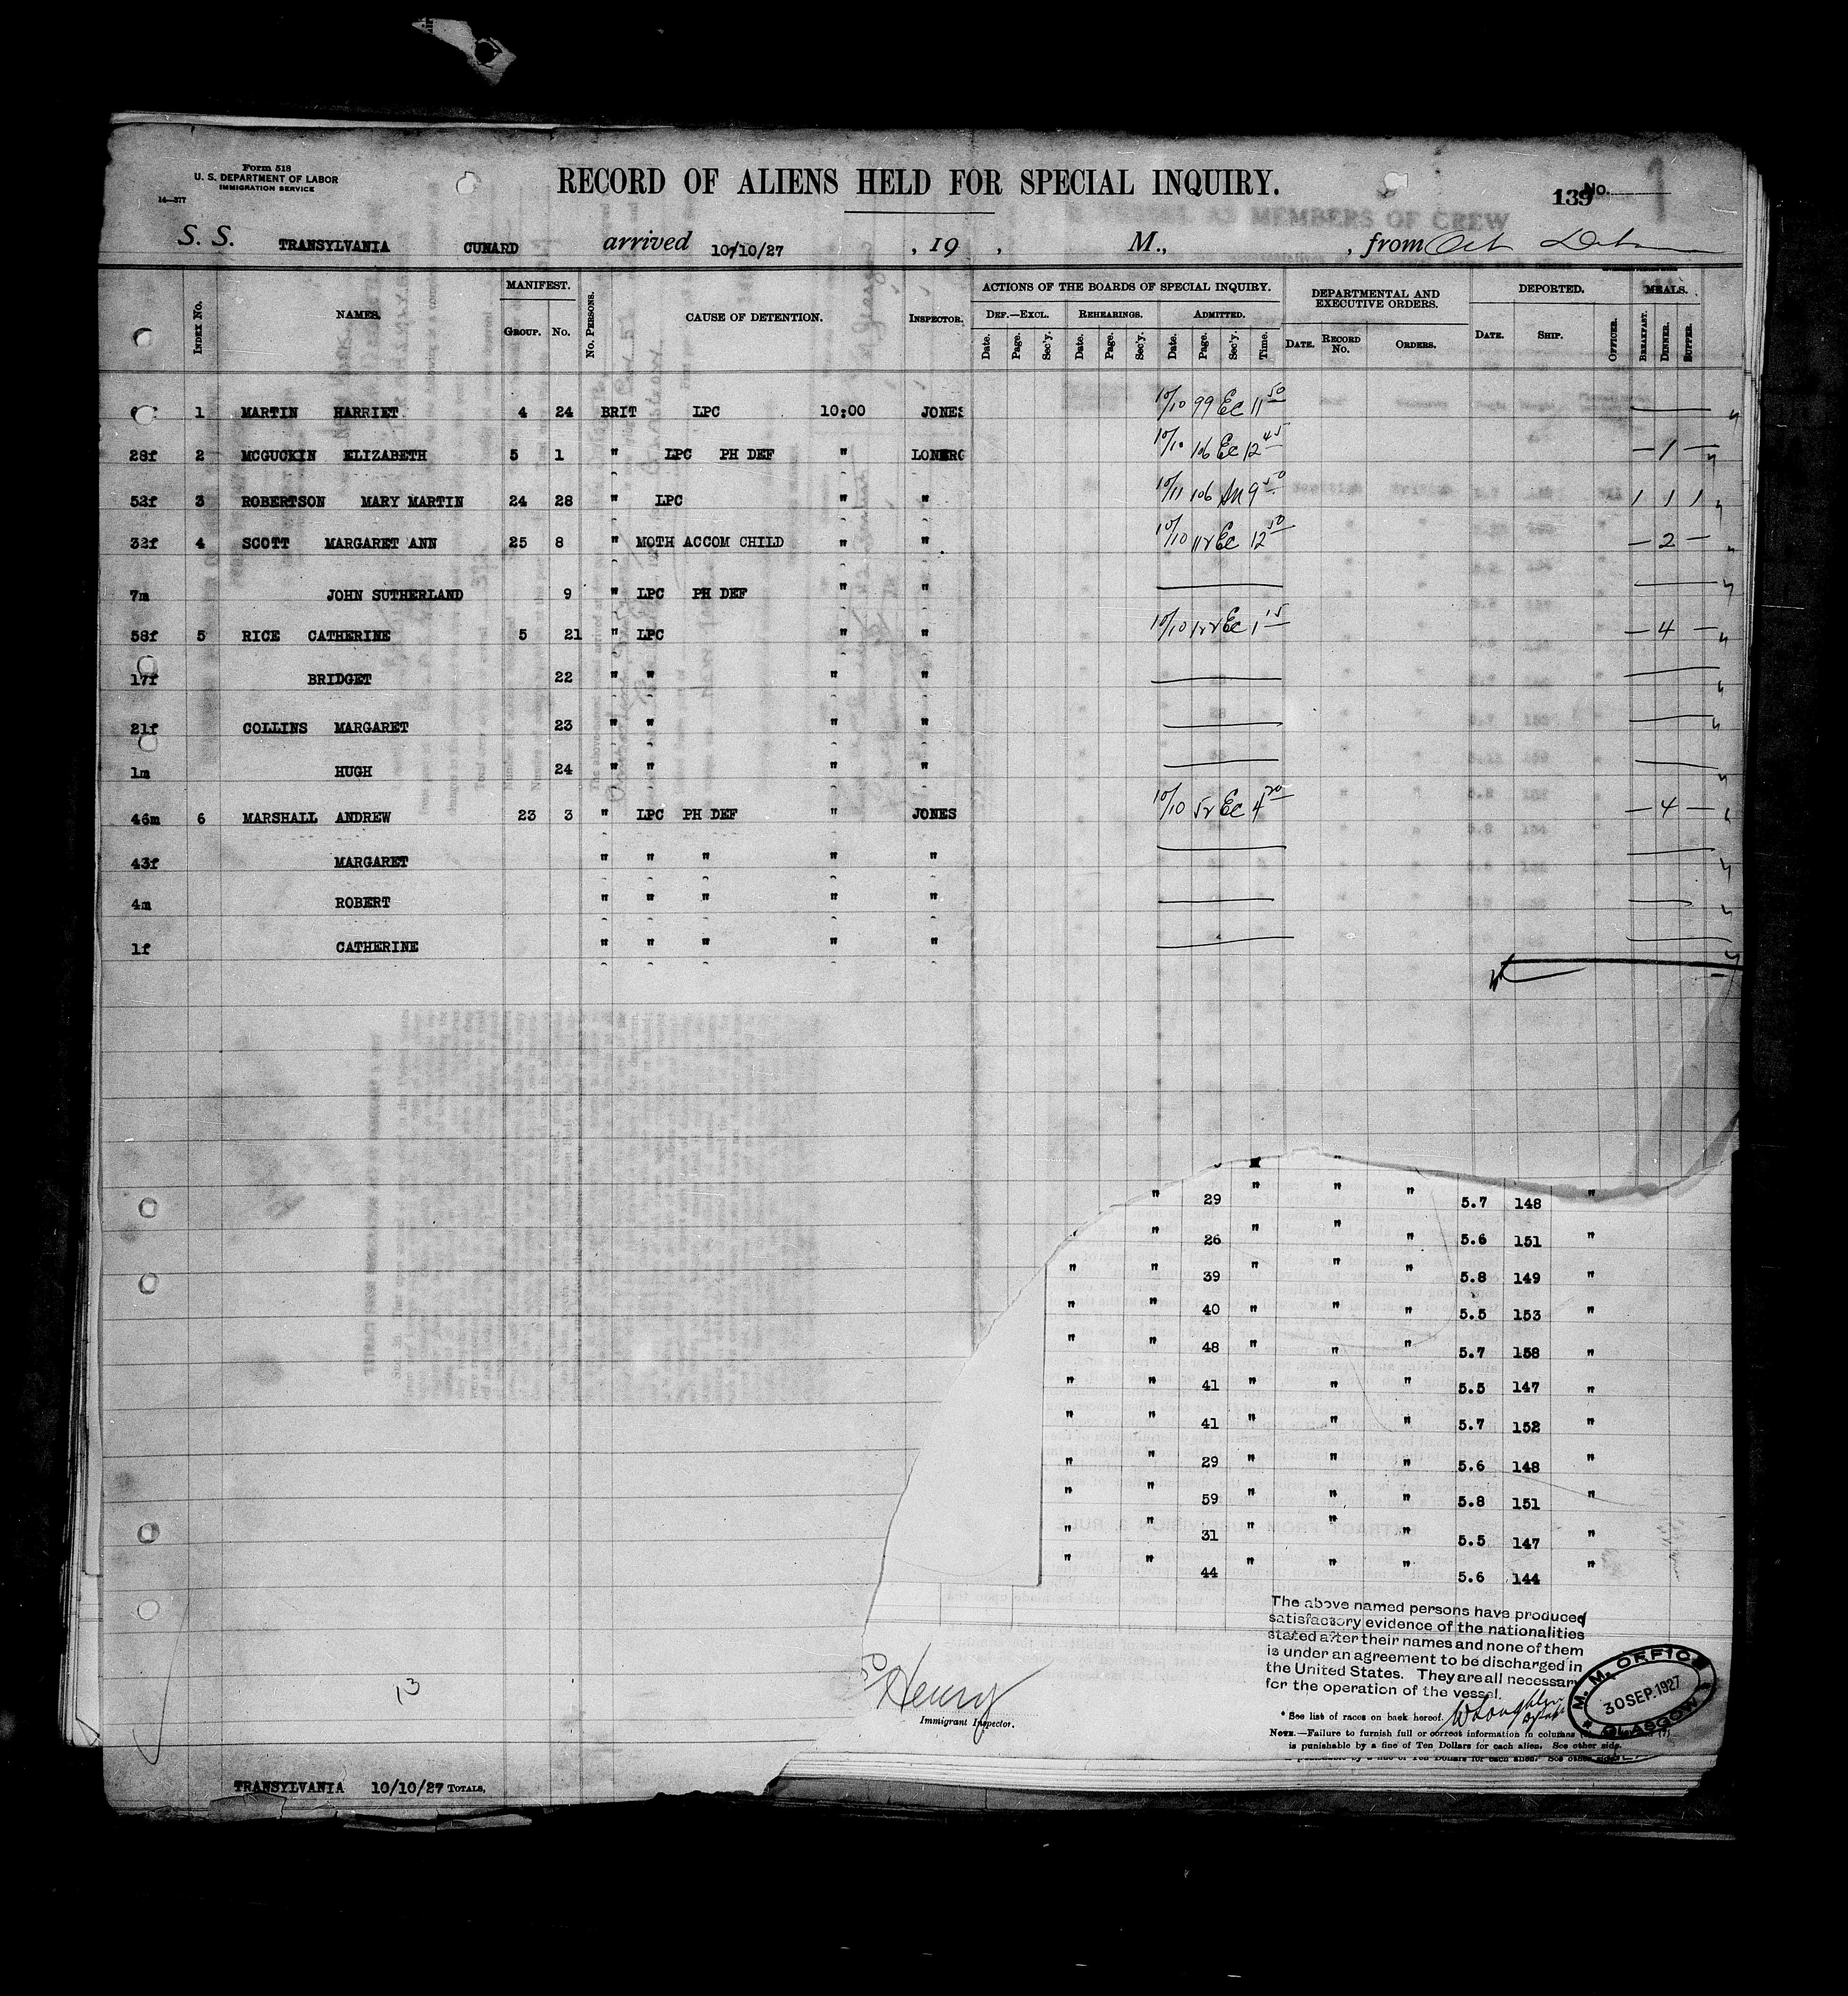 Form 518
U. S. DEPARTMENT OF LABOR
IMMIGRATION SERVICE
14—377
RECORD OF ALIENS HELD FOR SPECIAL INQUIRY.
139 No. 1
S. S. TRANSYLVANIA CUNARD arrived 10/10/27 , 19 , M., , from
INDEX No. NAMES. MANIFEST. GROUP. No. No. PERSONS. CAUSE OF DETENTION. INSPECTOR. ACTIONS OF THE BOARDS OF SPECIAL INQUIRY. DEF.—EXCL. Date. Page. Sec'y. REHEARINGS. Date. Page. Sec'y. ADMITTED. Date. Page. Sec'y. Time. DEPARTMENTAL AND EXECUTIVE ORDERS. DATE. RECORD No. ORDERS. DEPORTED. DATE. SHIP. OFFICER. MEALS. BREAKFAST. DINNER. SUPPER.
1 MARTIN HARRIET 4 24 BRIT LPC 10:00 JONES 10/10 99 Ec 11 50
28f 2 MCGUCKIN ELIZABETH 5 1 " LPC PH DEF " LONERG 10/10 106 Ec 12 45 — 1 —
52f 3 ROBERTSON MARY MARTIN 24 28 " LPC " " 10/11 106 9 50 1 1 1
32f 4 SCOTT MARGARET ANN 25 8 " MOTH ACCOM CHILD " " 10/10 Ec 12 50 — 2 —
7m JOHN SUTHERLAND 9 " LPC PH DEF " "
58f 5 RICE CATHERINE 5 21 " LPC " " 10/10 Ec 1 15 — 4 —
17f BRIDGET 22 " " " "
21f COLLINS MARGARET 23 " " " "
1m HUGH 24 " " " "
46m 6 MARSHALL ANDREW 23 3 " LPC PH DEF " JONES 10/10 Ec 4 — 4 —
43f MARGARET " " " " "
4m ROBERT " " " " "
1f CATHERINE " " " " "
" 29 " " " 5.7 148 "
" 26 " " " 5.6 151 "
" " 39 " " " 5.8 149 "
" " 40 " " " 5.5 153 "
" " 48 " " " 5.7 158 "
" " 41 " " " 5.5 147 "
" " 41 " " " 5.7 152 "
" " 29 " " " 5.6 148 "
" " 59 " " " 5.8 151 "
" " 31 " " " 5.5 147 "
" " 44 " " " 5.6 144 "
The above named persons have produced
satisfactory evidence of the nationalities
stated after their names and none of them
is under an agreement to be discharged in
the United States. They are all necessary
for the operation of the vessel.
Henry
Immigrant Inspector.
M. M. OFFICE
30 SEP. 1927
GLASGOW
* See list of races on back hereof.
NOTE.—Failure to furnish full or correct information in columns
is punishable by a fine of Ten Dollars for each alien. See other side.
13
TRANSYLVANIA 10/10/27 TOTALS,